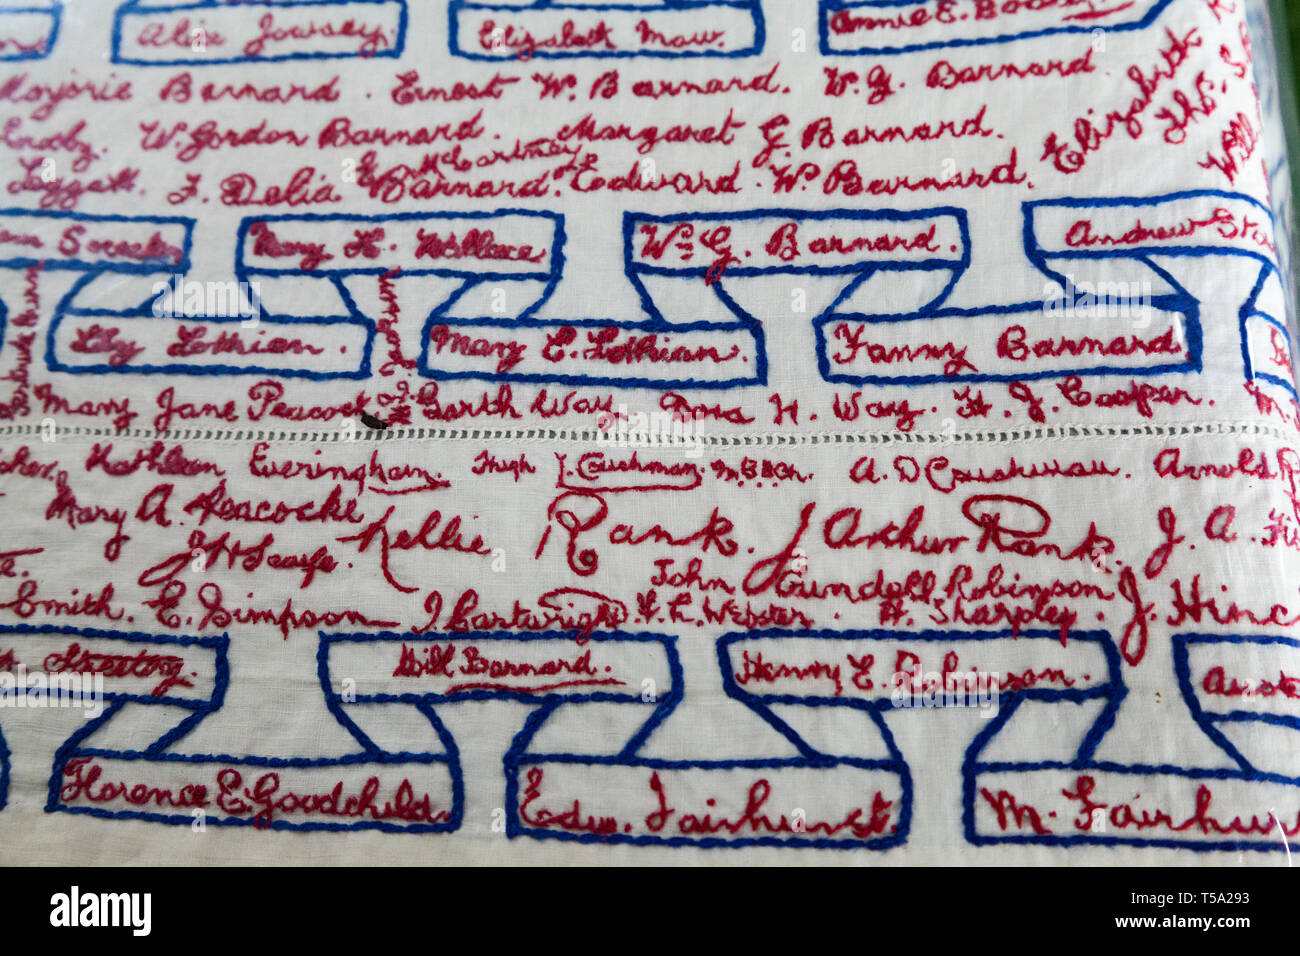 Alice Jowsey. Elizabeth Maw. Annie E.
Marjorie Barnard. Ernest W. Barnard. W. G. Barnard.
W. Gordon Barnard. Margaret G. Barnard. Elizabeth
McCartney
Leggett. F. Delia Barnard. Edward W. Barnard.
Mary H. Wallace Wm G. Barnard. Andrew
Lily Lothian. Mary E. Lothian. Fanny Barnard
Mary Jane Peacock Garth Way Dora H. Way. H. J. Cooper. M.
Kathleen Everingham. Hugh J. Cushman. A. D Cushman. Arnold
Mary A. Peacocke Nellie Rank. J Arthur Rank. J. A.
J H Scarfe.
John Gundell Robinson
Smith. E. Simpson J. Cartwright. Webster. H. Sharpley J. Hinc
Will Barnard. Henry E. Robinson.
Florence E. Goodchild. Edw. Fairhurst. M. Fairhur
alamy
Image ID: T5A293
www.alamy.com